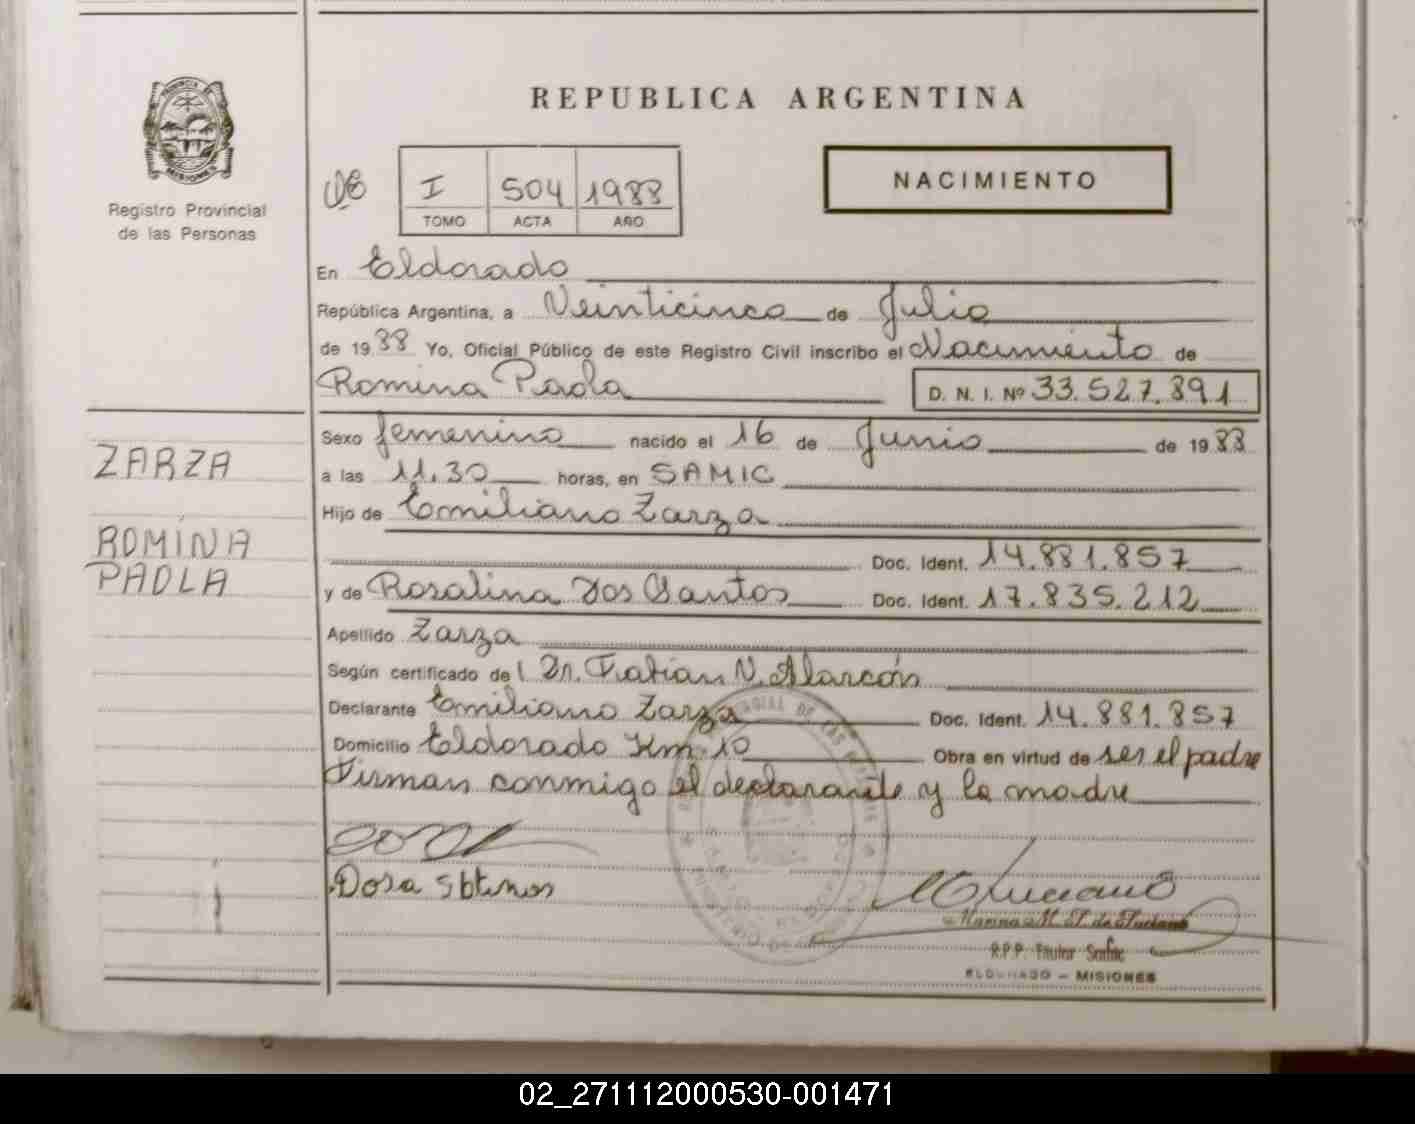 REPUBLICA ARGENTINA
PROVINCIA DE
MISIONES
Registro Provincial
de las Personas
I 504 1988
TOMO ACTA AÑO
NACIMIENTO
En Eldorado
República Argentina, a Veinticinco de Julio
de 1988 Yo, Oficial Público de este Registro Civil inscribo el Nacimiento de
Romina Paola D. N. I. Nº 33.527.891
Sexo femenino nacido el 16 de Junio de 1988
a las 11,30 horas, en SAMIC
Hijo de Emiliano Zarza
Doc. Ident. 14.881.857
y de Rosalina Dos Santos Doc. Ident. 17.835.212
Apellido Zarza
Según certificado de Dr. Fabian N. Alarcón
Declarante Emiliano Zarza Doc. Ident. 14.881.857
Domicilio Eldorado Km. 10 Obra en virtud de ser el padre
Firman conmigo el declarante y la madre
ZARZA
ROMINA
PAOLA
ELDORADO - MISIONES
02_271112000530-001471